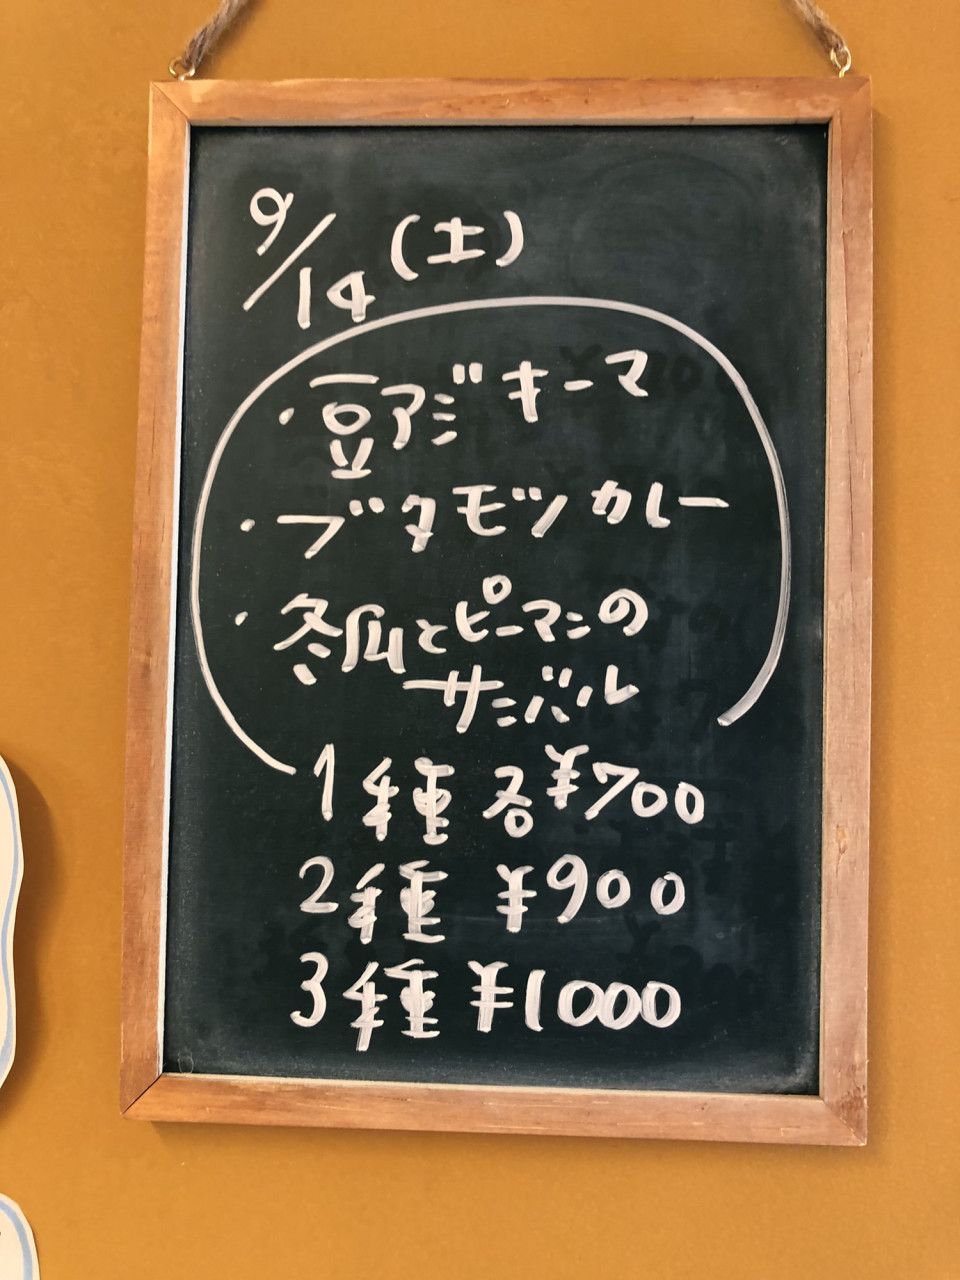 9/14(土)
・豆アジキーマ
・ブタモツカレー
・冬瓜とピーマンの
サンバル
1種 各¥700
2種 ¥900
3種 ¥1000